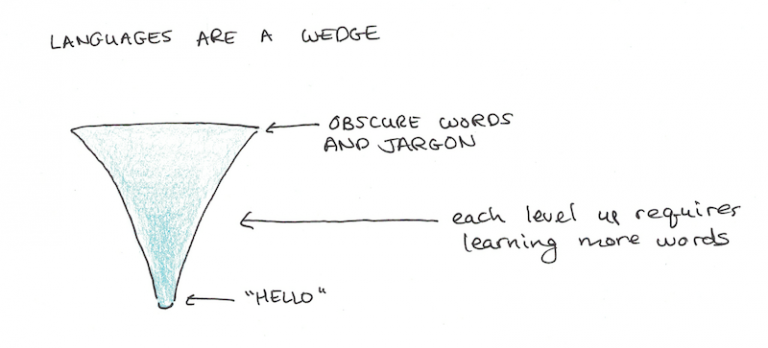 LANGUAGES ARE A WEDGE
OBSCURE WORDS
AND JARGON
each level up requires
learning more words
"HELLO"